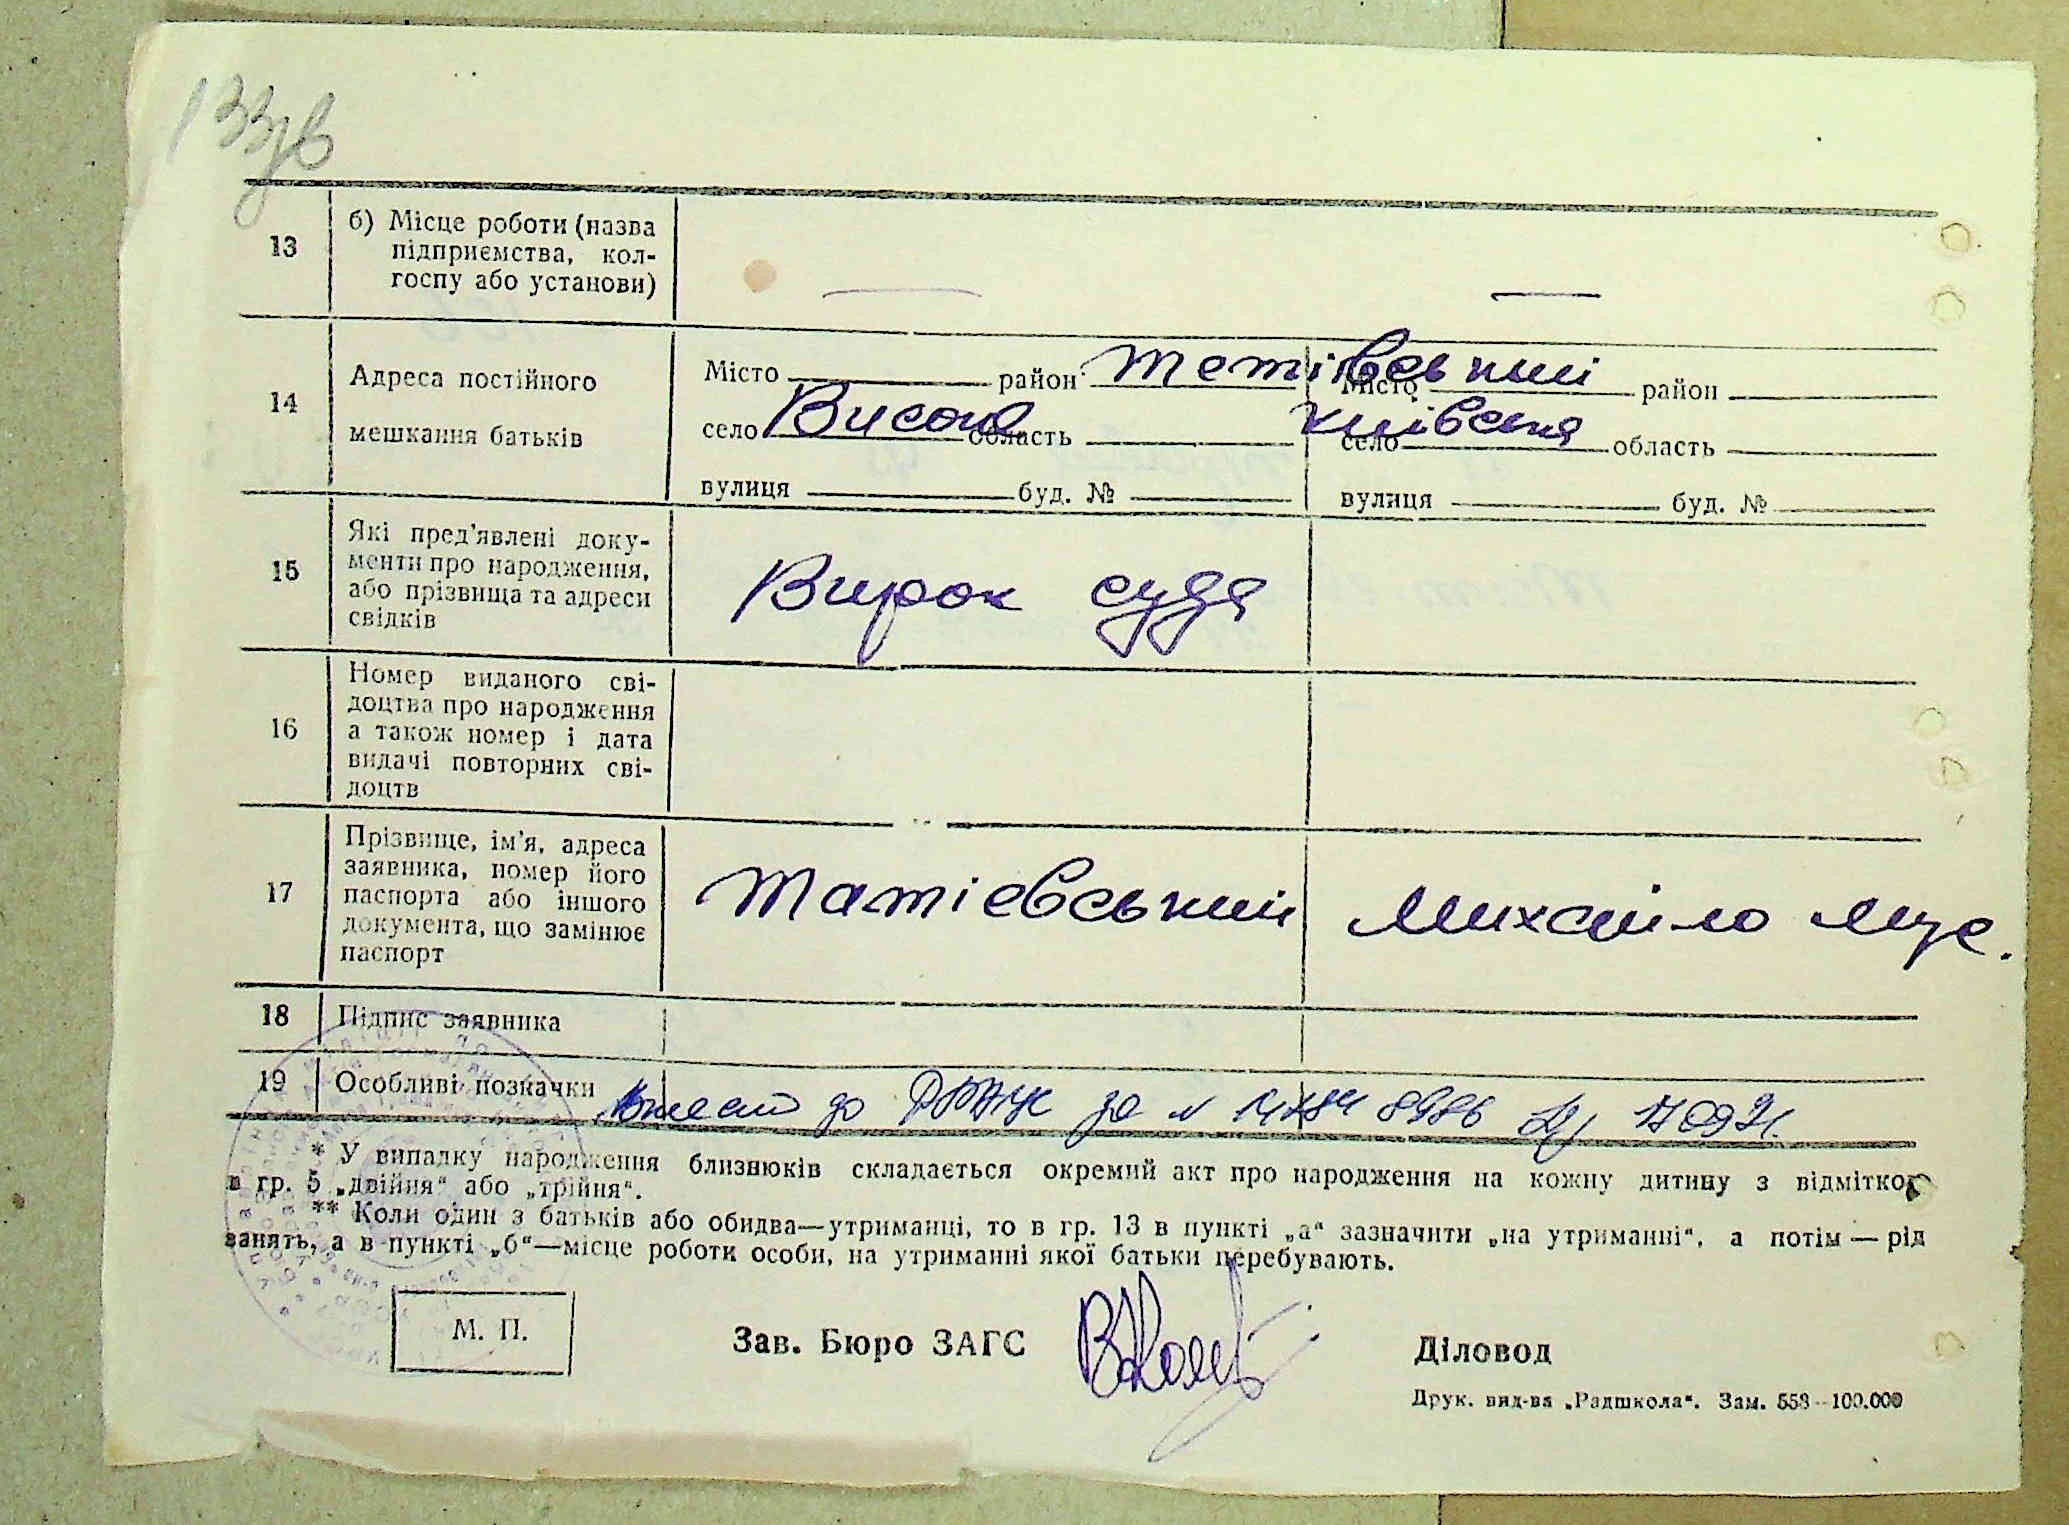 133зв
13 б) Місце роботи (назва
підприємства, кол-
госпу або установи)
— —
14 Адреса постійного
мешкання батьків
Місто район Тетіївський Місто район
село Висока область Київська село область
вулиця буд. № вулиця буд. №
15 Які пред'явлені доку-
менти про народження,
або прізвища та адреси
свідків
Вирок суда
16 Номер виданого сві-
доцтва про народження
а також номер і дата
видачі повторних сві-
доцтв
17 Прізвище, ім'я, адреса
заявника, номер його
паспорта або іншого
документа, що замінює
паспорт
Татіевський Михайло
18 Підпис заявника
19 Особливі позначки
до за №
* У випадку народження близнюків складається окремий акт про народження на кожну дитину з відміткою
в гр. 5 „двійня“ або „трійня“.
** Коли один з батьків або обидва—утриманці, то в гр. 13 в пункті „а“ зазначити „на утриманні“, а потім — рід
занять, а в пункті „б“—місце роботи особи, на утриманні якої батьки перебувають.
М. П. Зав. Бюро ЗАГС Діловод
Друк. вид-ва „Радшкола“. Зам. 553—100.000